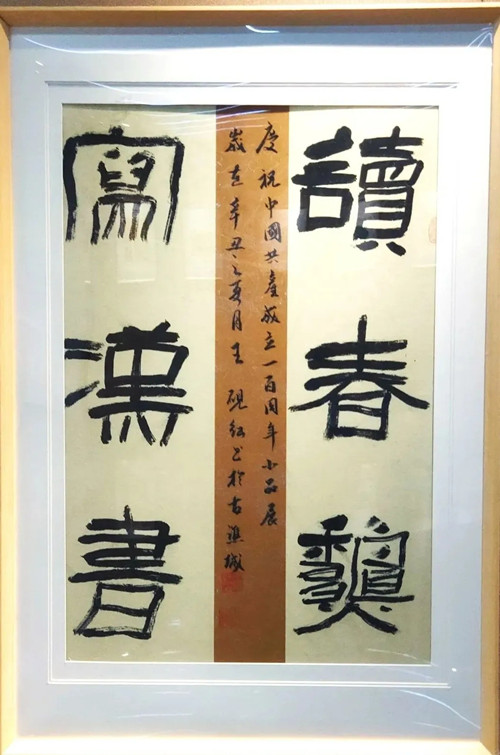 讀春龝
慶祝中國共產成立一百周年小品展
歲在辛丑之夏月王硯紅書於古譙城
寫漢書